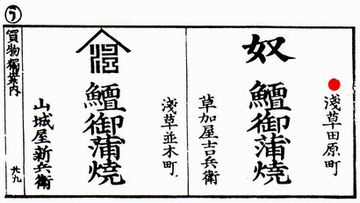 う
買物獨案内
共九
淺草田原町
奴
鱣御蒲焼
草加屋吉兵衛
淺草並木町
鱣御蒲焼
山城屋新兵衛